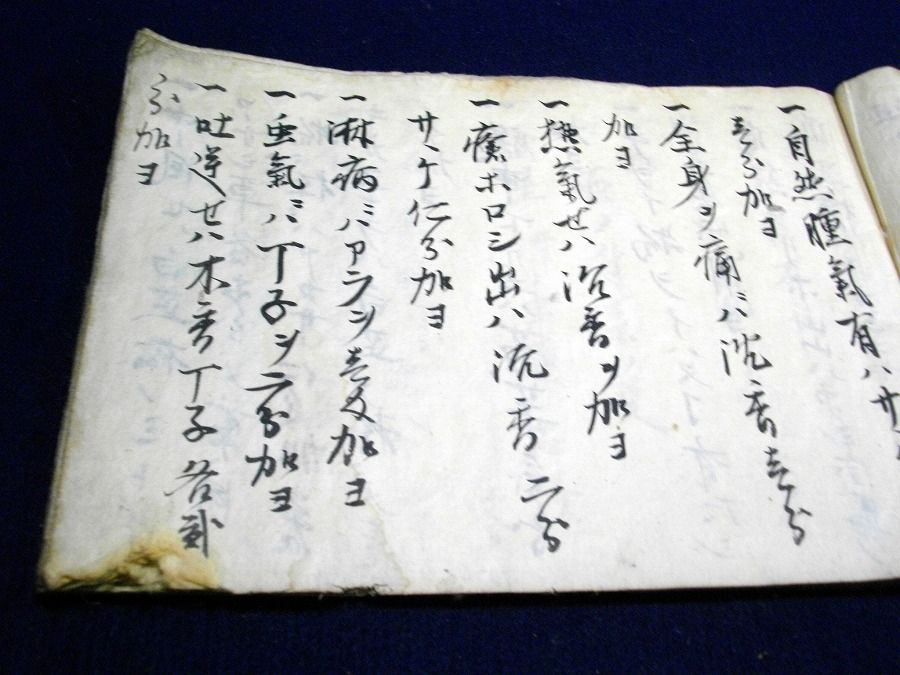 一自然腫氣有ハサ
壱分加ヨ
一全身ヲ痛バ沈香壱分
加ヨ
一換氣セハ沉香ヲ加ヨ
一瘡ホロシ出ハ沉香二分
サヽケ仁分加ヨ
一淋病バアランヲ壱匁加ヨ
一虫氣バ丁子ヲ二分加ヨ
一吐逆セハ木香丁子各貳
分加ヨ